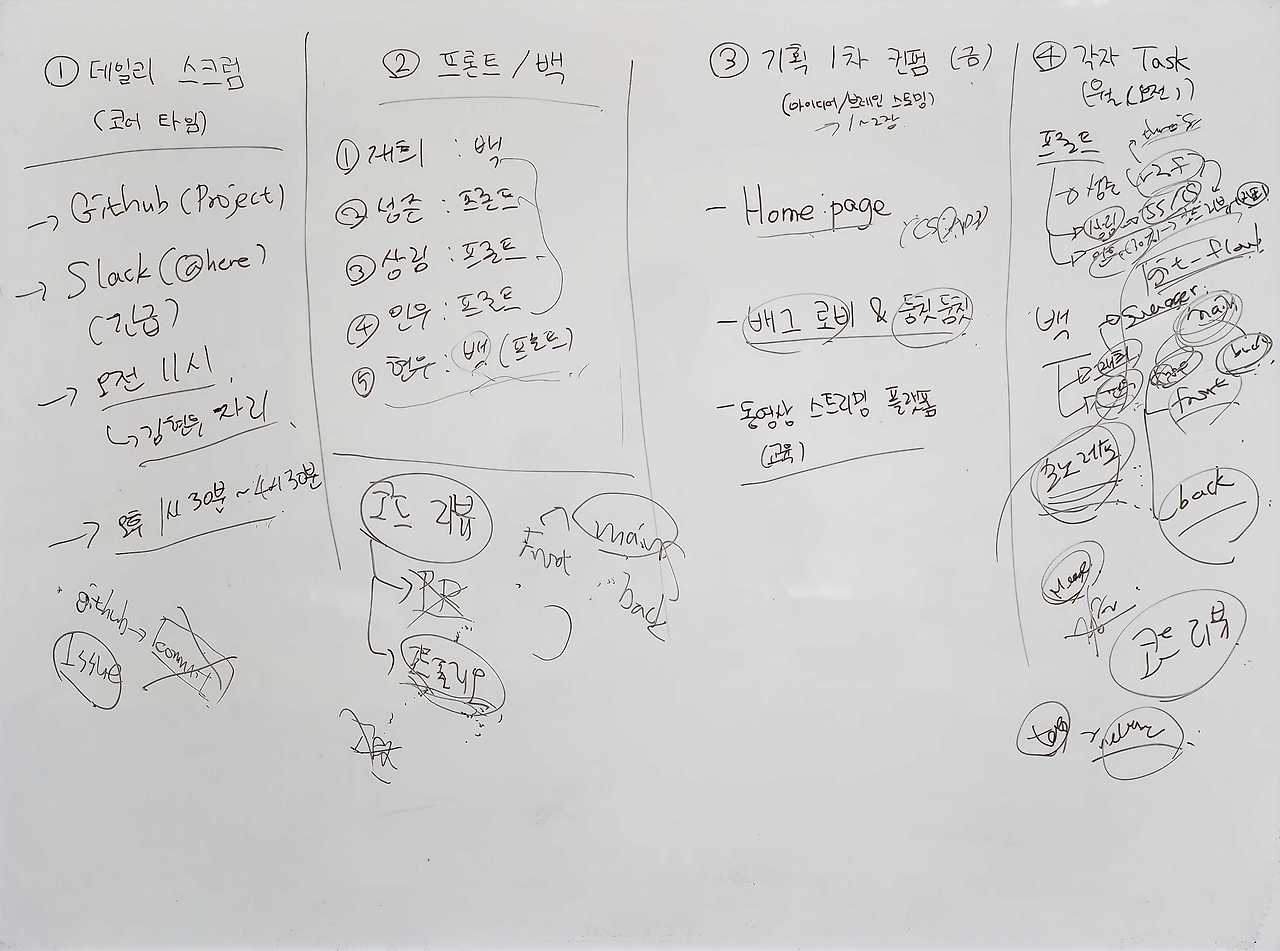 ① 데일리 스크럼
(코어 타임)
→ Github (Project)
→ Slack (@here)
(긴급)
→ 오전 11시
↳ 김현우 자리
→ 오후 1시 30분 ~ 4시 30분
github → commit
Issue
② 프론트 / 백
① 재희 : 백
② 성준 : 프론트
③ 상림 : 프론트
④ 인우 : 프론트
⑤ 현우 : 백 (프론트)
코드 리뷰
→ PR
main
front
back
③ 기획 1차 컨펌 (금)
(아이디어/브레인 스토밍)
→ 1~2장
- Home page
- 배그 로비 & 둥칫둥칫
- 동영상 스트리밍 플랫폼
(교육)
④ 각자 Task
(오전)
프론트
git-flow
백
swagger
main
재희
back
front
back
코드 리뷰
tag → release